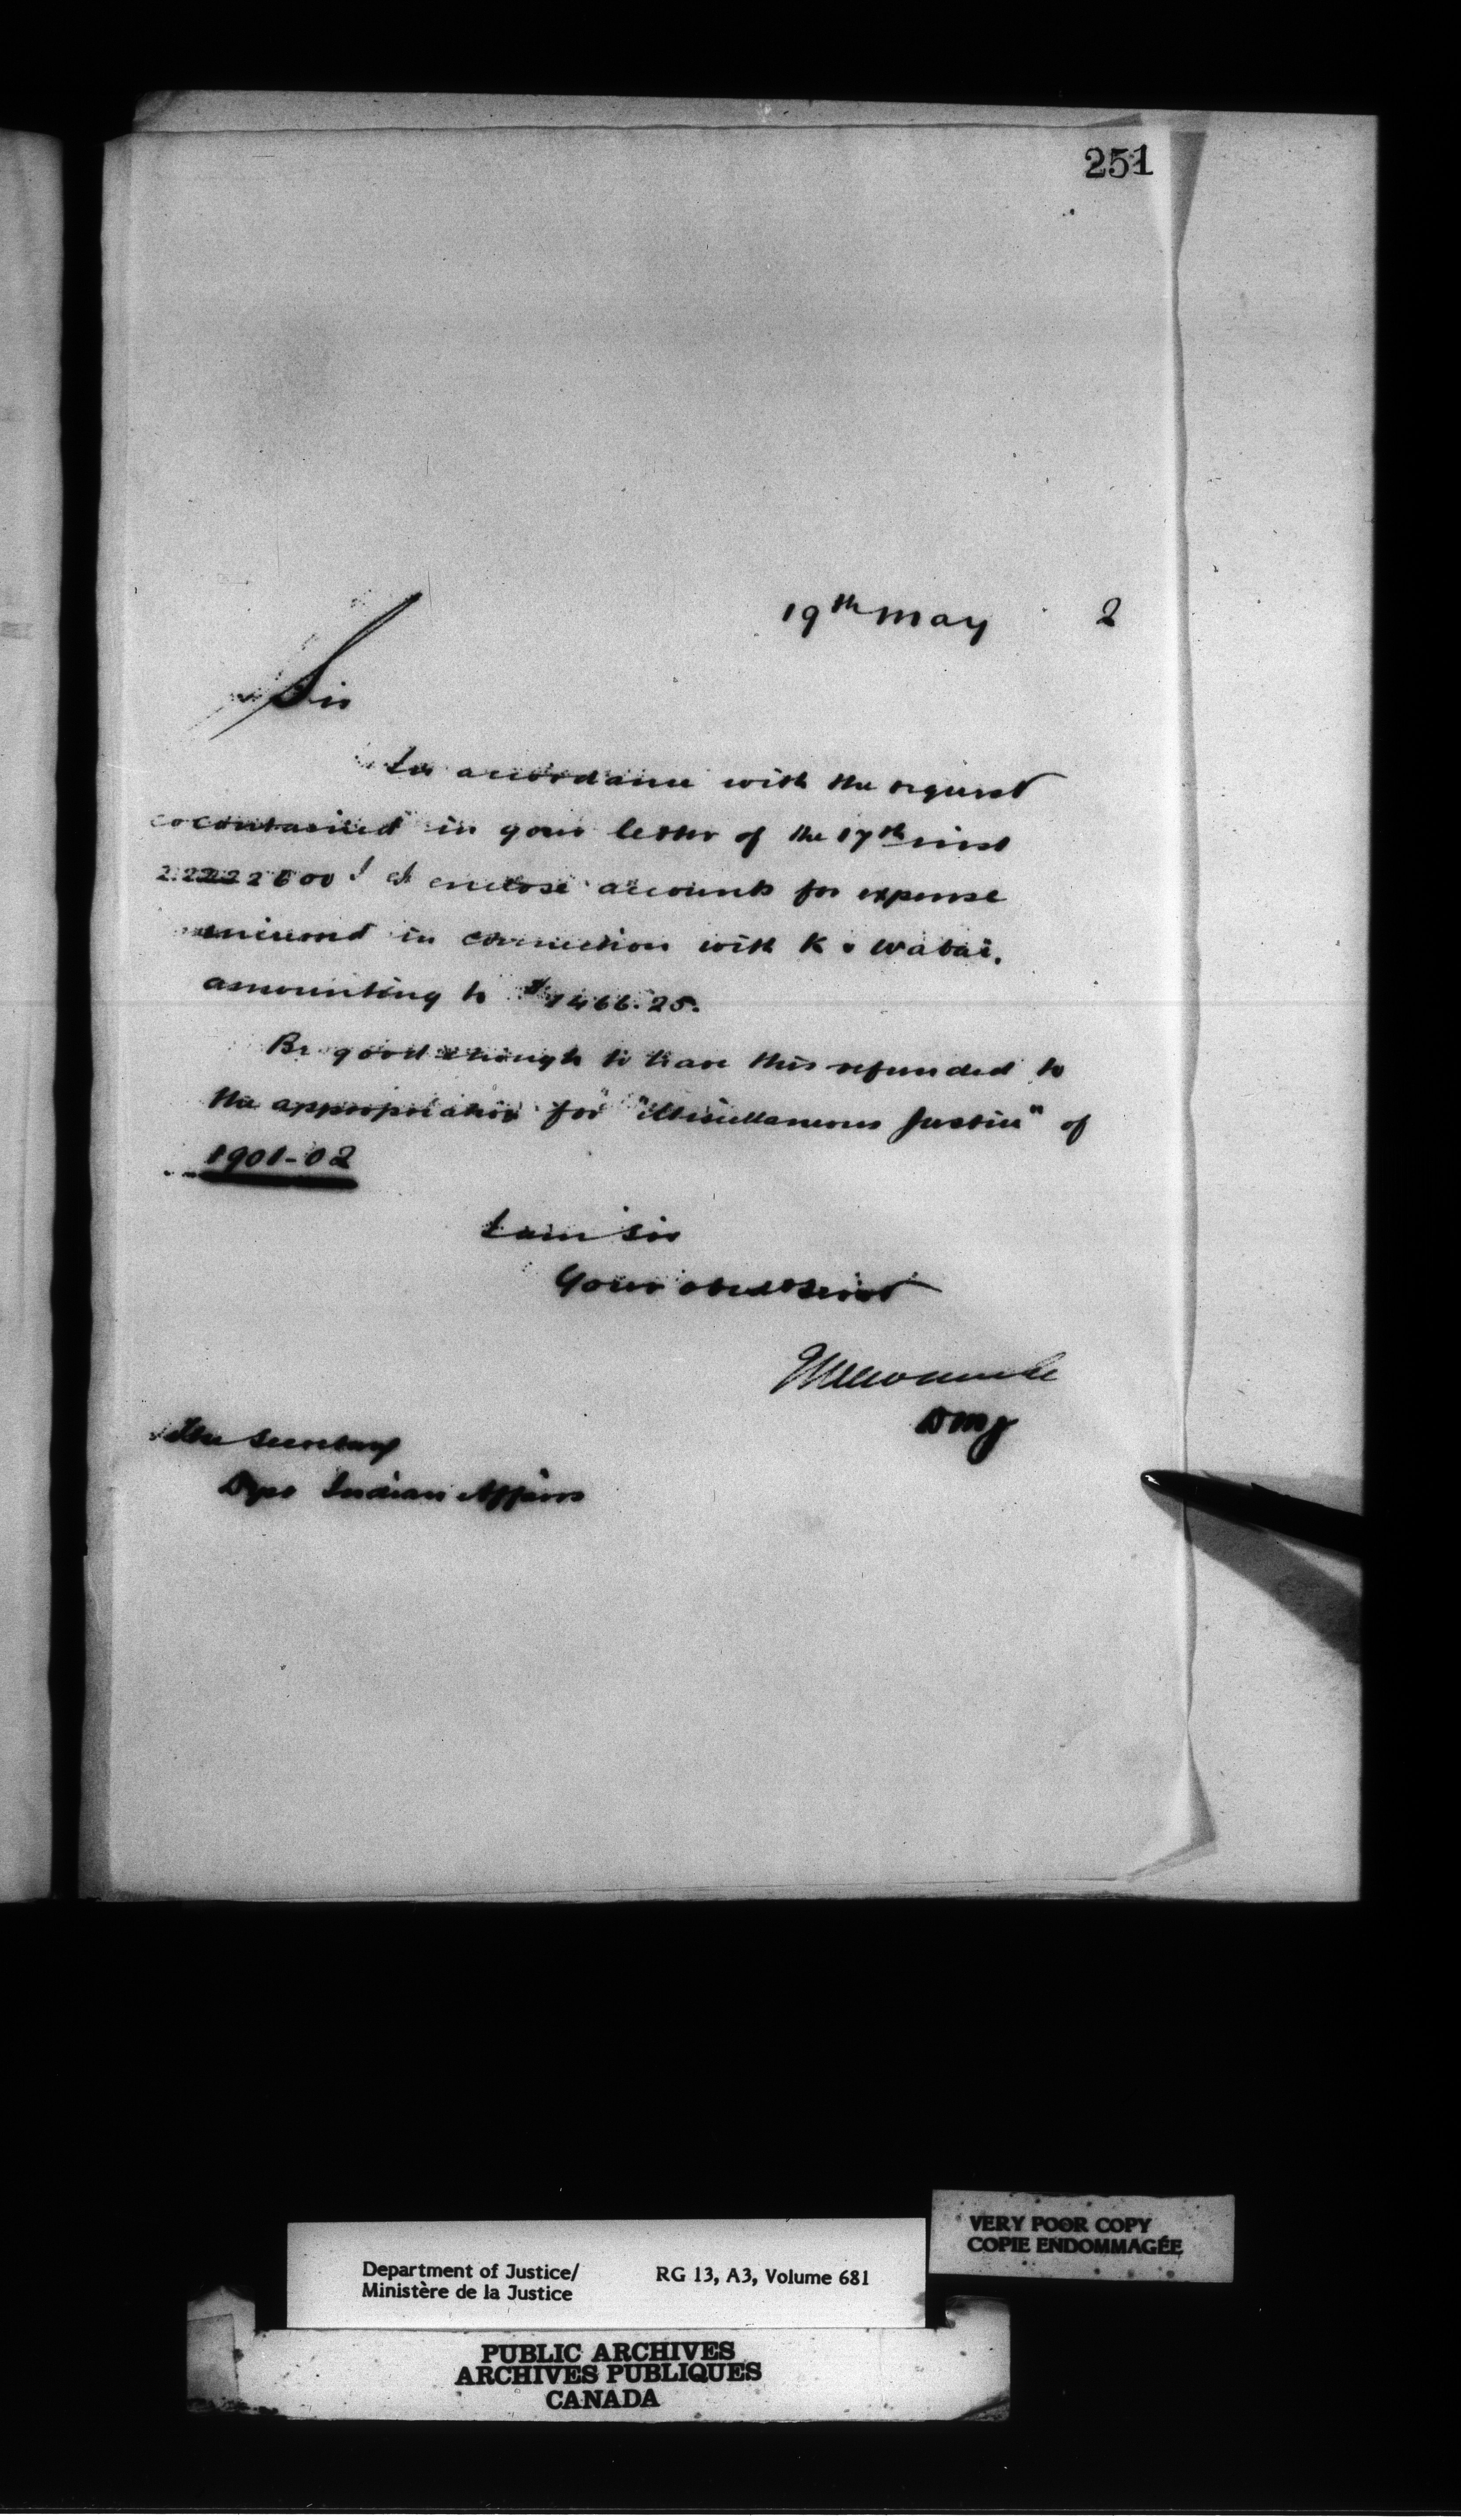 251
19th May 2
Sir
In accordance with the request
contained in your letter of the 17th inst
I enclose accounts for expense
incurred in connection with K v Wabai.
amounting to $1466.25.
Be good enough to have this refunded to
the appropriation for "Miscellaneous Justice" of
1901-02
I am Sir
Your obedt Servt
E L Newcombe
DMJ
The Secretary
Dept Indian Affairs
VERY POOR COPY
COPIE ENDOMMAGÉE
Department of Justice/ RG 13, A3, Volume 681
Ministère de la Justice
PUBLIC ARCHIVES
ARCHIVES PUBLIQUES
CANADA